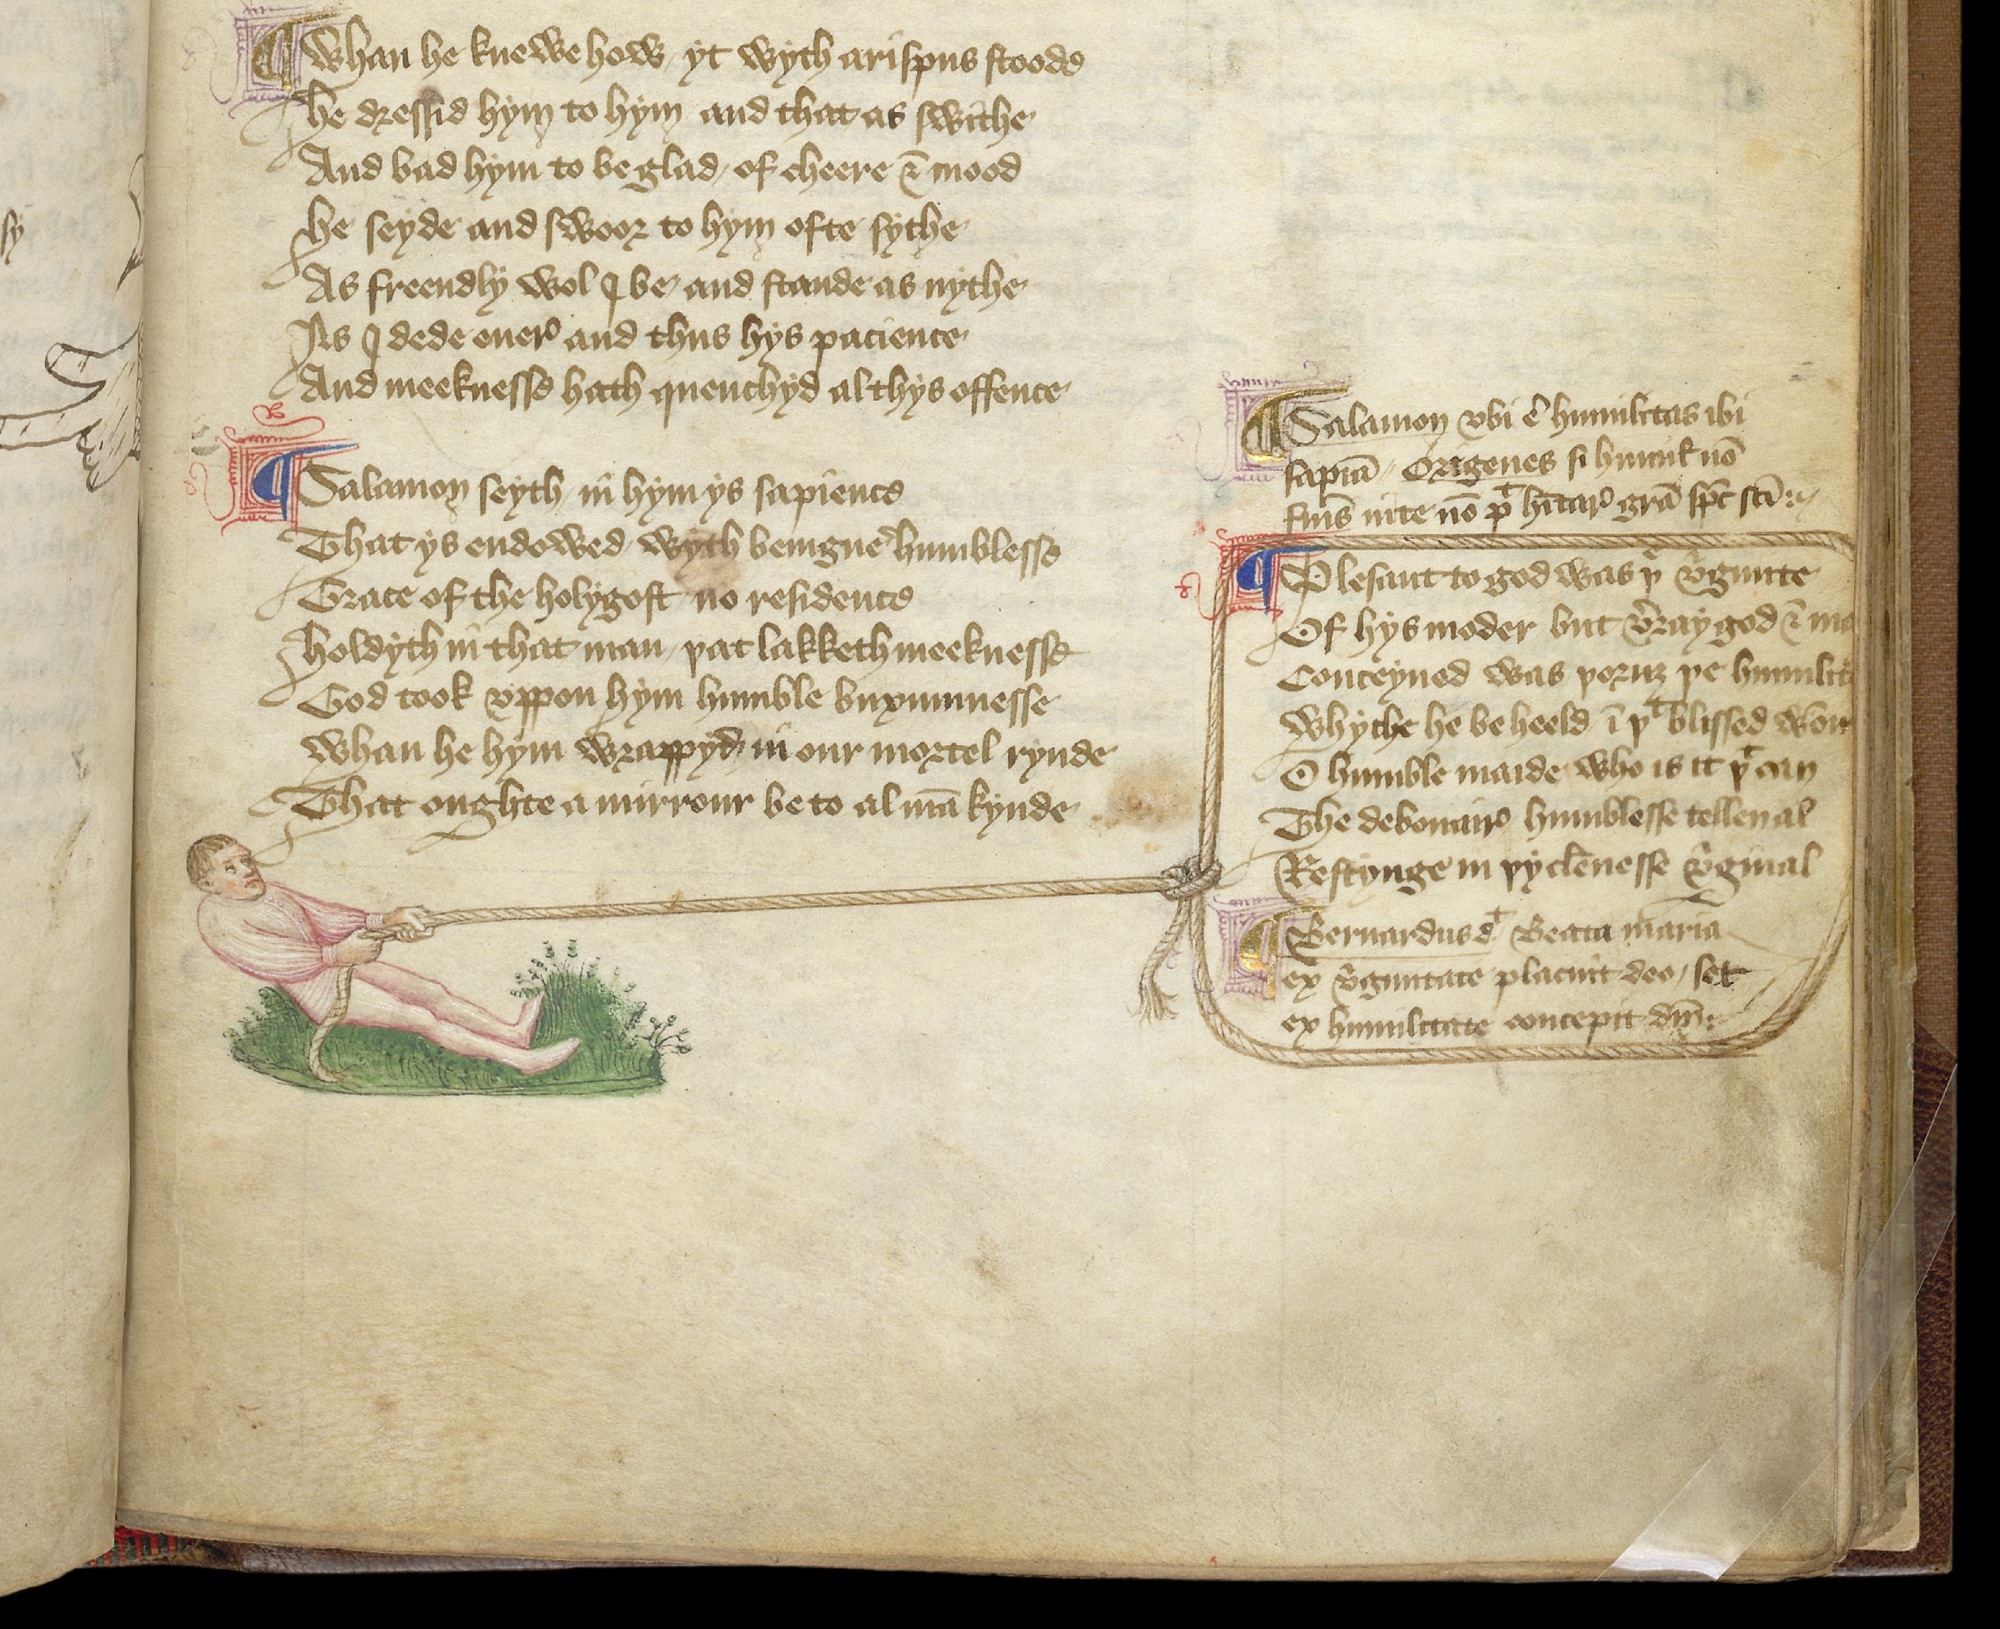 whan he knewe how yt wyth arispus stoode
he dressid hym to hym and that as swithe
And bad hym to be glad of cheere & mood
he seyde and swoor to hym ofte sythe
As freendly wol I be and stande as nythe
As I dede euer and thus hys pacience
And meeknesse hath quenchyd al thys offence
Salamon seyth in hym ys sapience
That ys endowed wyth benigne humblesse
Grace of the holygost no residence
holdyth in that man þat lakketh meeknesse
God took vppon hym humble buxumnesse
whan he hym wrappyd in our mortel rynde
That oughte a mirrour be to al mākynde
Salamon vbi ē humilitas ibi
sapiā Origenes si humil nō
fu̅is mite nō þ hītar grā sp̄c scī
Plesant to god was þͥ v̓ginite
Of hys moder but v̓ray god & ma
Conceyued was þoruȝ þe humilite
whyche he beheeld ī þͭ blissed wom
O humble maide who is it þͭ can
The debonair humblesse tellen al
Restynge in þy clēnesse v̓ginal
Bernardus dͭ Beata maria
ex v̓ginitate placuit deo set
ex humilitate concepit dn̄m